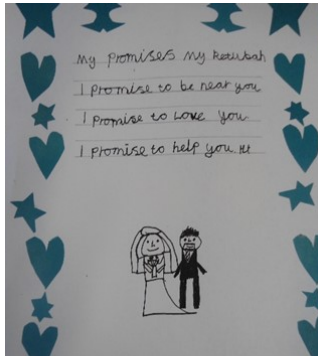 My Promises My Ketubah
I promise to be near you
I promise to Love you
I promise to help you